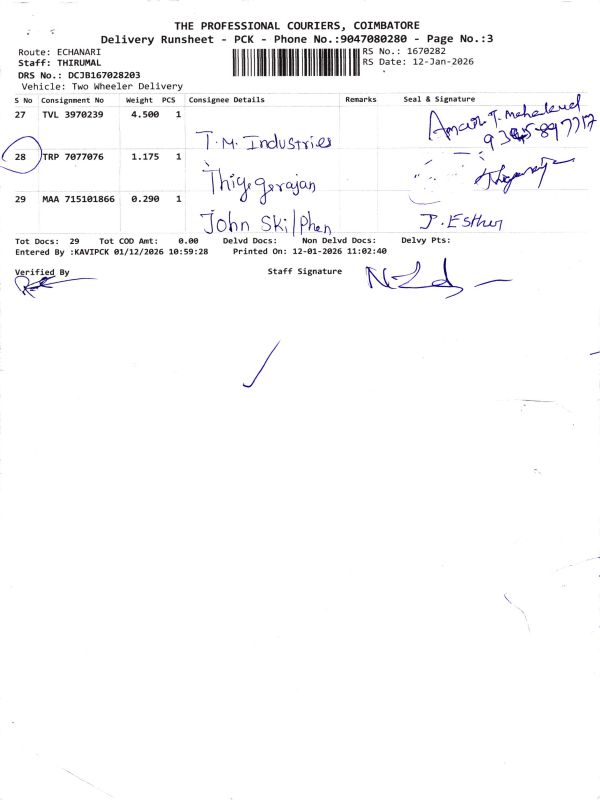 THE PROFESSIONAL COURIERS, COIMBATORE
Delivery Runsheet - PCK - Phone No.:9047080280 - Page No.:3
Route: ECHANARI
RS No.: 1670282
Staff: THIRUMAL
RS Date: 12-Jan-2026
DRS No.: DCJB167028203
Vehicle: Two Wheeler Delivery
S No Consignment No Weight PCS Consignee Details Remarks Seal & Signature
27 TVL 3970239 4.500 1
T.M. Industries
28 TRP 7077076 1.175 1
29 MAA 715101866 0.290 1
John
J. Esther
Tot Docs: 29 Tot COD Amt: 0.00 Delvd Docs: Non Delvd Docs: Delvy Pts:
Entered By :KAVIPCK 01/12/2026 10:59:28 Printed On: 12-01-2026 11:02:40
Verified By Staff Signature